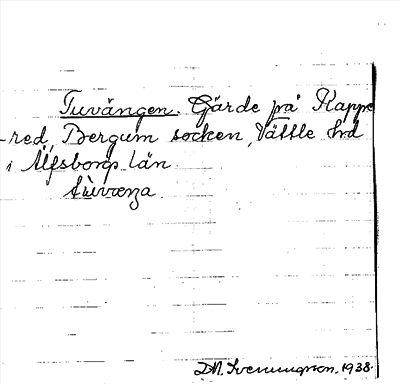 Tuvängen. Gärde på Kappe
-red, Bergum socken, Vättle hrd
i Älfsborgs län.
tùvæŋa
D.M. Svenungsson. 1938.